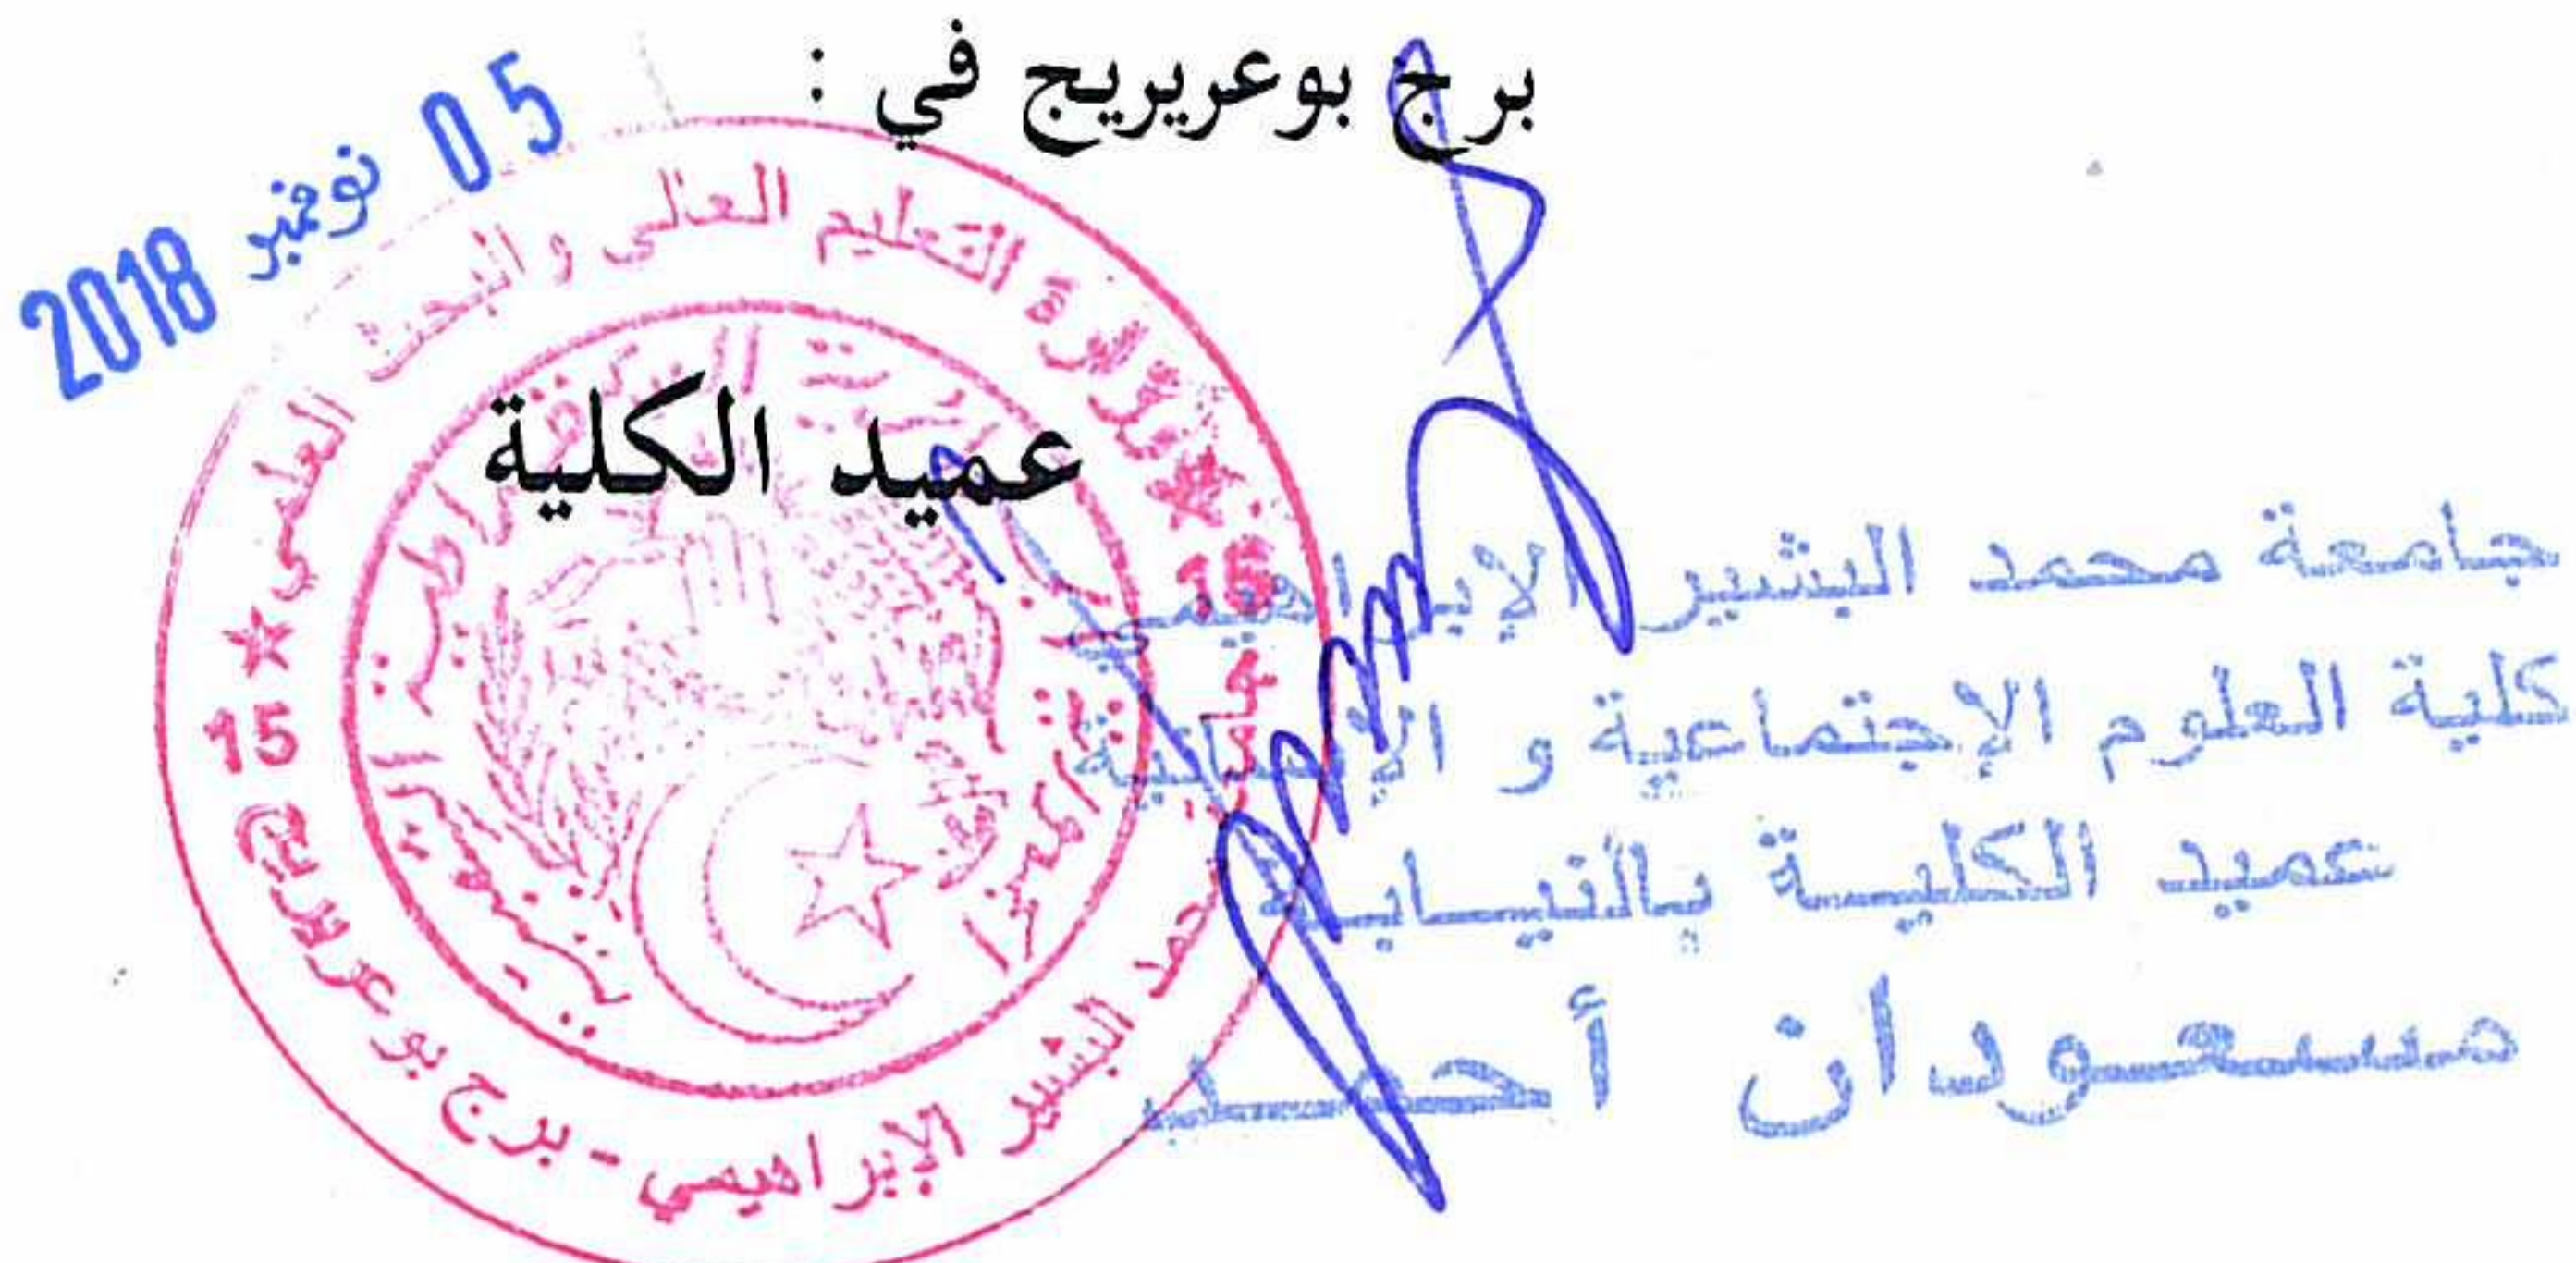 برج بوعريريج في :
05 نوفمبر 2018
عميد الكلية
وزارة التعليم العالي و البحث العلمي
15
15
محمد البشير الإبراهيمي - برج بوعريريج
جامعة محمد البشير الإبراهيمي
كلية العلوم الإجتماعية و الإنسانية
عميد الكليـــة بالنيـــابـــة
مســـعـــودان أحمـــد